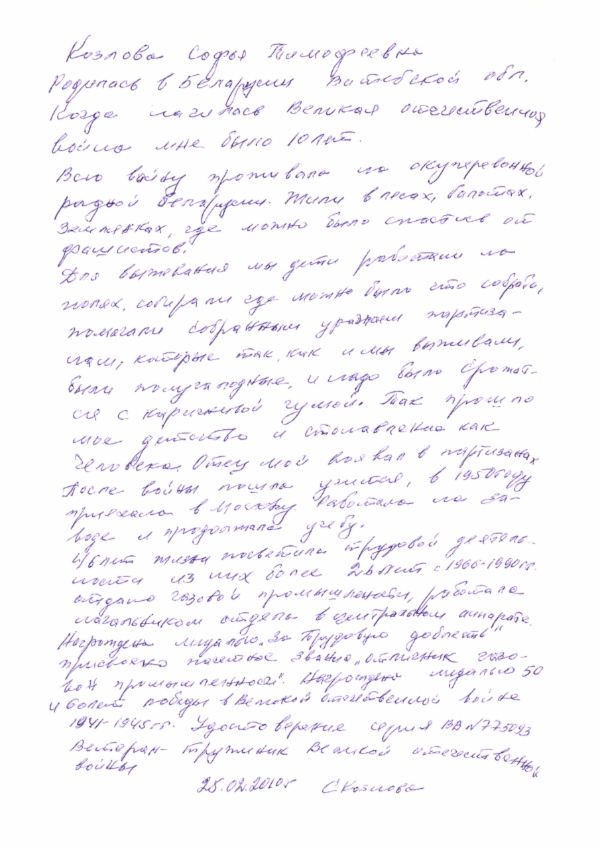 Козлова Софья Тимофеевна
Родилась в Беларусии Витебской обл.
Когда началась Великая отечественная
война мне было 10 лет.
Всю войну проживала на окуперованной
родной Беларусии. Жили в лесах, болотах,
землянках, где можно было спастись от
фашистов.
Для выжевания мы дети работали на
полях, собирали где можно было что собрать,
помогали собранным уражаем партиза-
нам, которые так, как и мы выживали,
были полуголодные, и надо было сражат-
ся с каричневой чумой. Так прошло
мое детство и становление как
человека. Отец мой воявал в партизанах
После войны пошла учится, в 1950 году
приехала в Москву. Работала на за-
воде и продолжала учебу.
46 лет жизни посветила трудовой деятель-
ности из них более 26 лет с 1966-1990 гг.
отдано газовой промышлености, работала
начальником отдела в центральном аппарате.
Награждена медалью „За Трудовую доблесть"
присвоено почетное звание „отличник газо-
вой промышленности". Награждена медалью 50
и 60 лет победы в Великой отечественной войне
1941-1945 гг. Удостоверение серия ВВ N 775093
Ветеран-труженик Великой отечественной
войны
25.02.2010 г СКозлова